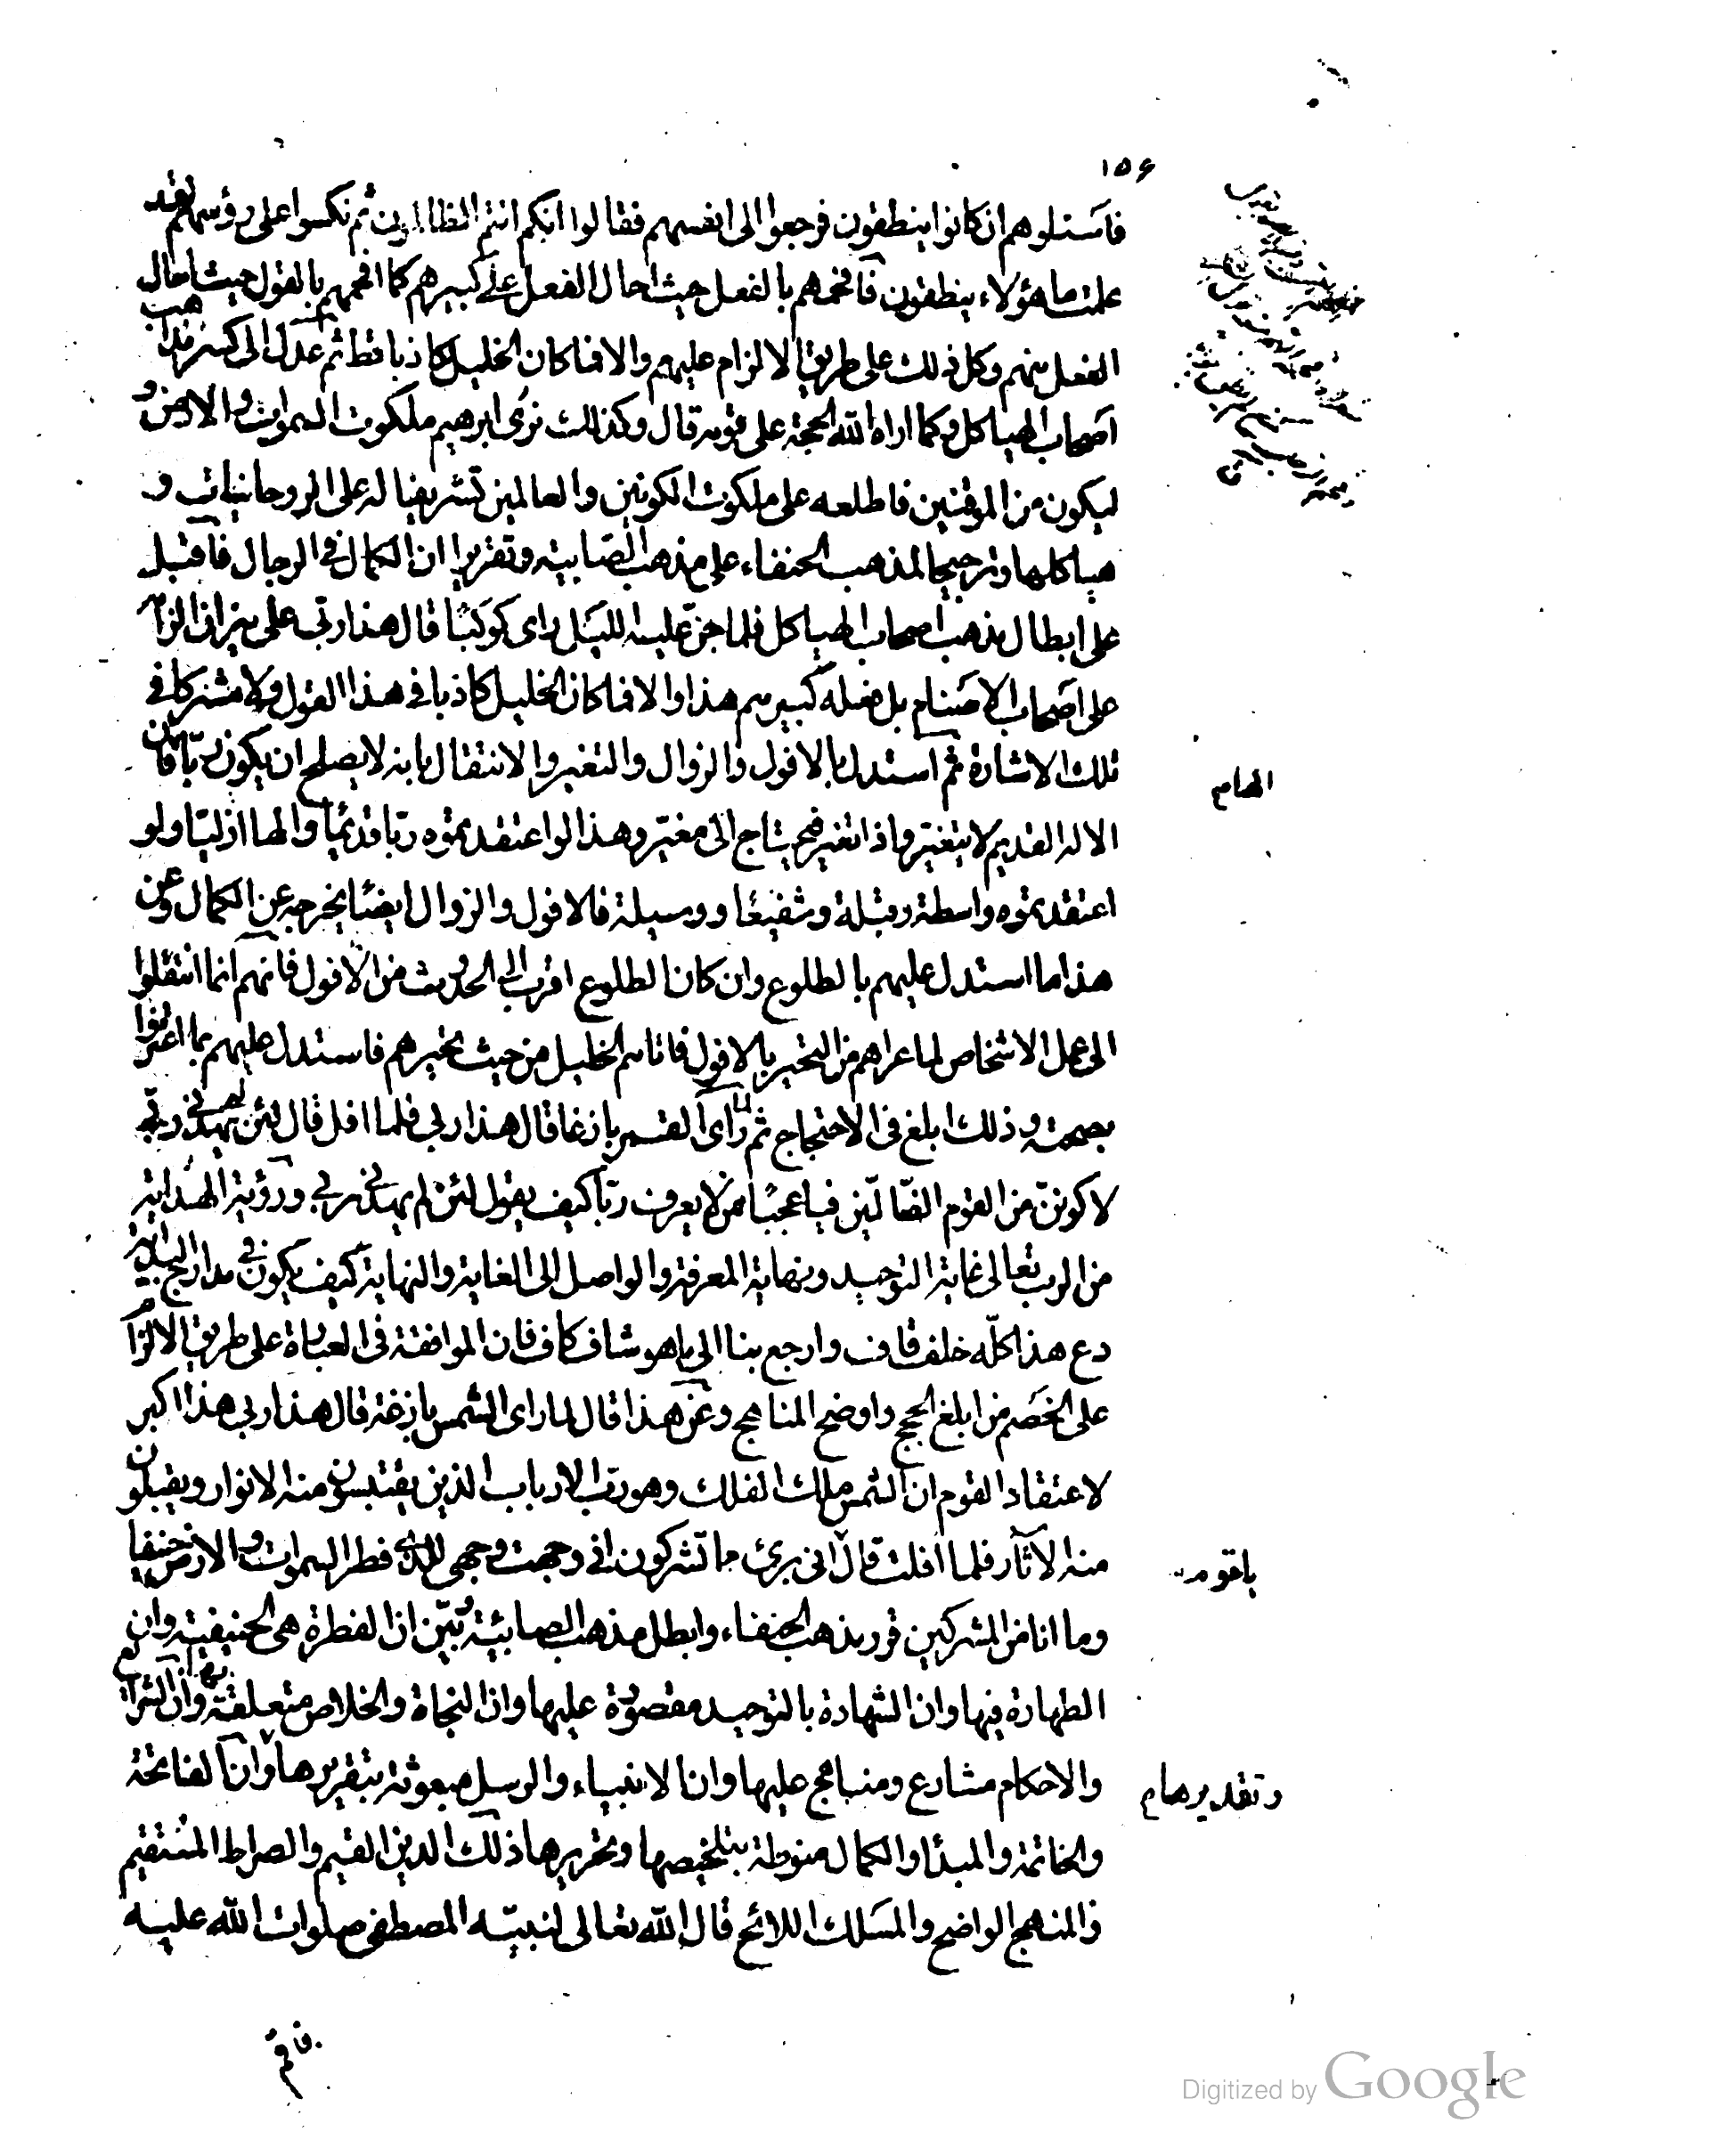 ١٥۶
فاسئلوهم ان كانوا ينطقون فرجعوا الى انفسهم فقالوا انكم انتم الظالمون ثم نكسوا على رؤسهم لقد
علمت ما هؤلاء ينطقون فافحمهم بالفعل حيث احال الفعل على كبيرهم كما افحمهم بالقول حيث احال
الفعل منهم وكل ذلك على طريق الالزام عليهم والا فما كان الخليل كاذبا قط ثم عدل الى كسر مذاهب
اصحاب الهياكل وكما اراه الله الحجة على قومه قال وكذلك نرى ابرهيم ملكوت السموات والارض و
ليكون من الموقنين فاطلعه على ملكوت الكونين والعالمين تشريفا له على الروحانيات و
هياكلها وترجيحا لمذهب الحنفاء على مذهب الصابية وتقريرا ان الكمال في الرجال فاقبل
على ابطال مذهب اصحاب الهياكل فلما جن عليه الليل راى كوكبا قال هذا ربي على ميزان الزامه
على اصحاب الاصنام بل فعله كبيرهم هذا والا فما كان الخليل كاذبا في هذا القول ولا مشركا في
تلك الاشارة ثم استدل بالافول والزوال والتغير والانتقال بانه لا يصلح ان يكون ربا فان
الاله القديم لا يتغير واذا تغير فيحتاج الى مغير وهذا لو اعتقدتموه ربا قديما والها ازليا ولو
اعتقدتموه واسطة وقبلة وشفيعا ووسيلة فالافول والزوال ايضا يخرجه عن الكمال وعن
هذا ما استدل عليهم بالطلوع وان كان الطلوع اقرب الى الحدوث من الافول فانهم انما انتقلوا
الى عمل الاشخاص لما عراهم من التحير بالافول فاتاهم الخليل من حيث تحيرهم فاستدل عليهم بما اعترفوا
بصحته وذلك ابلغ في الاحتجاج ثم لما راى القمر بازغا قال هذا ربي فلما افل قال لئن لم يهدني ربي
لاكونن من القوم الضالين فيا عجبا ممن لا يعرف ربا كيف يقول لئن لم يهدني ربي ورؤية الهداية
من الرب تعالى غاية التوحيد ونهاية المعرفة والواصل الى الغاية والنهاية كيف يكون في مدارج البداية
دع هذا كله خلف قاف وارجع بنا الى ما هو شاف كاف فان الموافقة في العبارة على طريق الالزام
على الخصم من ابلغ الحجج واوضح المناهج وعن هذا قال لما راى الشمس بازغة قال هذا ربي هذا اكبر
لاعتقاد القوم ان الشمس ملك الفلك وهو رب الارباب الذين يقتبسون منه الانوار ويقبلون
منه الآثار فلما افلت قال اني برئ مما تشركون اني وجهت وجهي للذي فطر السموات والارض حنيفا
وما انا من المشركين قرر مذهب الحنفاء وابطل مذهب الصابئية وبين ان الفطرة هي الحنيفية وان
الطهارة فيها وان الشهادة بالتوحيد مقصورة عليها وان النجاة والخلاص متعلقة بها وان الشرائع
والاحكام مشارع ومناهج عليها وان الانبياء والرسل مبعوثة بتقريرها وان الفاتحة
والخاتمة والمبدأ والكمال منوطة بتلخيصها وتحريرها ذلك الدين القيم والصراط المستقيم
والمنهج الواضح والمسلك اللائح قال الله تعالى لنبيه المصطفى صلوات الله عليه
الهام
ياقوم
وتقديرها م
فاقم
Digitized by Google